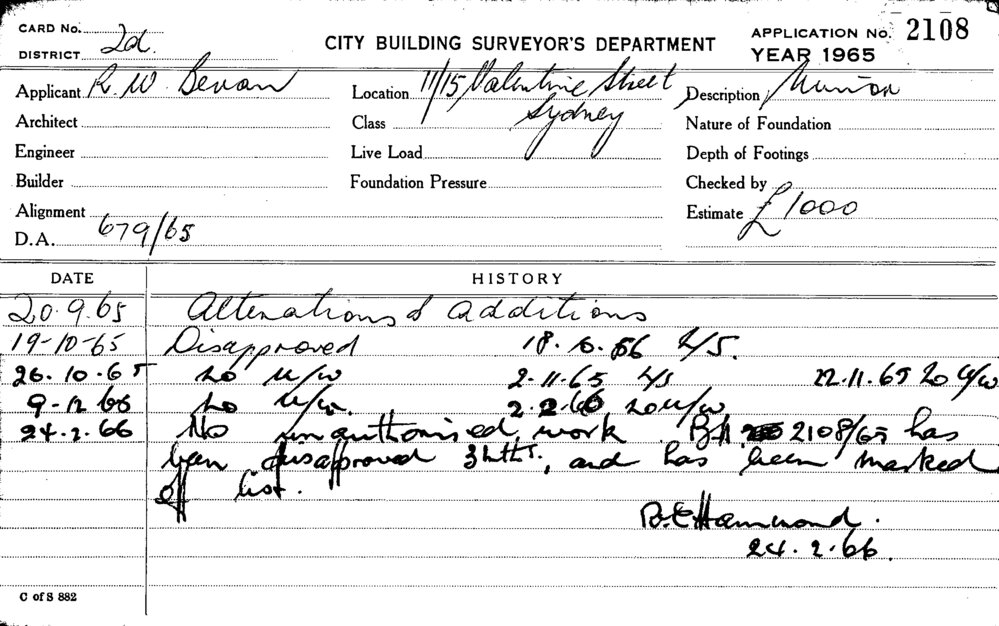 CARD No. 2d. CITY BUILDING SURVEYOR'S DEPARTMENT APPLICATION No. 2108
DISTRICT YEAR 1965
Applicant R. W. Bevan Location 11/15 Valentine Street Description
Architect Class Sydney Nature of Foundation
Engineer Live Load Depth of Footings
Builder Foundation Pressure Checked by
Alignment Estimate £1000
D.A. 679/65
DATE HISTORY
20.9.65 Alterations & additions
19-10-65 Disapproved 18. 66 4/5.
26.10.65 No u/w 2.11.65 4/5 22.11.65 No u/w
9-12 65 No u/w. 2.2.66 No u/w
24.2.66 No unauthorised work. BA 2108/65 has
been disapproved 3 mths., and has been marked
off list.
B.E Hammond.
24.2.66.
C of S 882